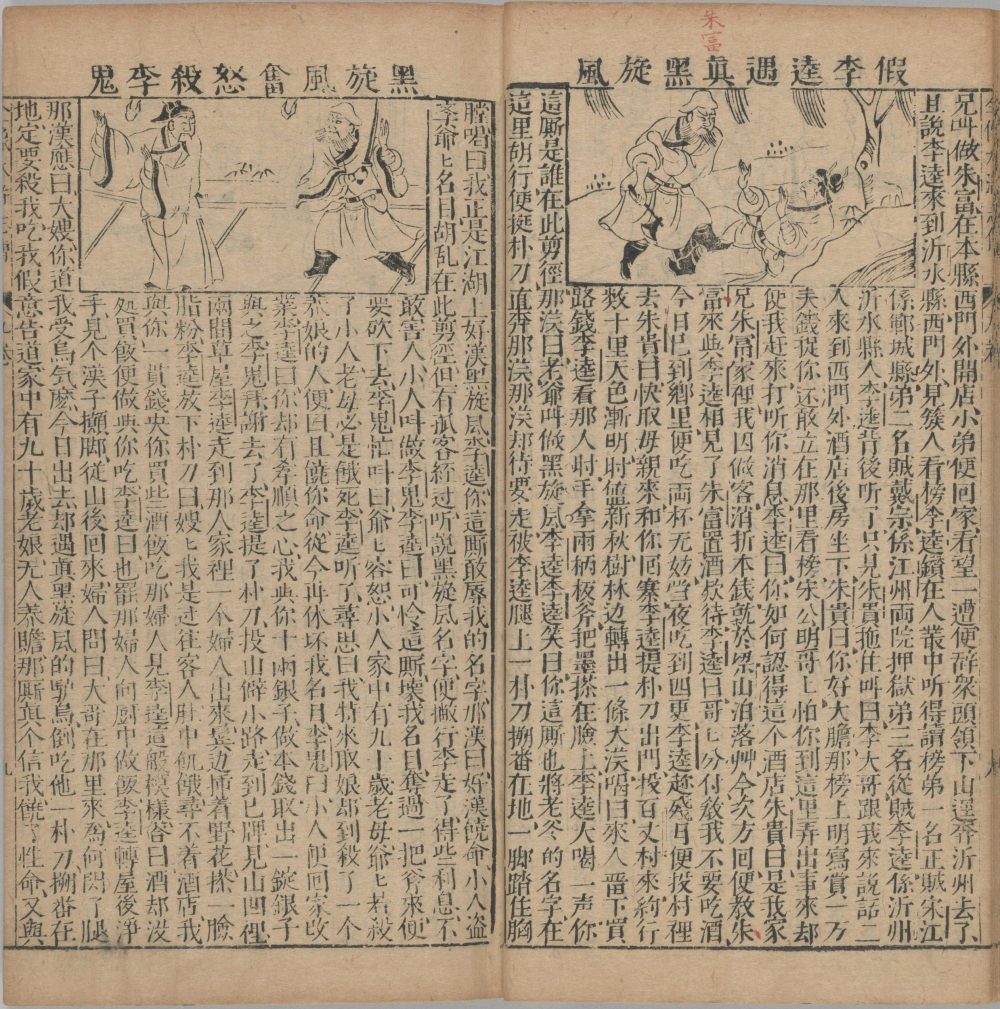 朱富
假李逵遇真黑旋風
兄叫做朱富在本縣西門外開店小弟便回家看望一遭便辞衆頭領下山逕奔沂州去了
且說李逵來到沂水縣西門外見簇人看榜李逵鑽在人叢中听得讀榜第一名正賊宋江
係鄆城縣第二名賊戴宗係江州両院押獄弟三名從賊李逵係沂州
沂水縣人李逵背後听了只見朱貴拖住叫曰李大哥跟我來說話二
人來到西門外酒店後房坐下朱貴曰你好大膽那榜上明寫賞一万
夫錢捉你还敢立在那里看榜宋公明哥上怕你到這里弄出事來却
便我赶來打听你消息李逵曰你如何認得這个酒店朱貴曰是我家
兄朱富家裡我因做客消折本錢就於梁山泊落艸今次方回便教朱
富來與李逵相見了朱富置酒欵待李逵曰哥匕分付敎我不要吃酒
今日已到鄉里便吃両杯无妨當夜吃到四更李逵趂殘月便投村裡
去朱貴曰快取母親來和你囘寨李逵提朴刀出門投百丈村來約行
数十里天色漸明时值新秋樹林边轉出一條大漢喝曰來人畱下買
路錢李逵看那人时手拿両柄板斧把墨搽在臉上李逵大喝一声你
這厮是誰在此剪徑那漢曰老爷叫做黑旋風李逵李逵笑曰你這厮也將老爷的名字在
這里胡行便挺朴刀直奔那漢那漢却待要走被李逵腿上一朴刀搠番在地一脚踏住胸
黑旋風奮怒殺李鬼
膛唱曰我正是江湖上好漢黑旋風李逵你這厮敢辱我的名字那漢曰好漢饒命小人盗
李爷匕名目胡乱在此剪径但有孤客經过听說黑旋風名字便撇行李走了得些利息不
敢害人小人叫做李鬼李逵曰可怜這厮壞我名目奪過一把斧來便
要砍下去李鬼忙叫曰爷匕容恕小人家中有九十歲老母爷匕若殺
了小人老母必是餓死李逵听了尋思曰我特來取娘却到殺了一个
养娘的人便曰且饒你命從今再休坏我名目李鬼曰小人便囘家改
業李逵曰你却有孝順之心我與你十両銀子做本錢取出一錠銀子
與之李鬼拜謝去了李逵提了朴刀投山僻小路走到巳牌見山凹裡
両間草屋李逵走到那人家裡一个婦人出來边揷着野花搽一臉
脂粉李逵放下朴刀曰嫂匕我是过往客人肚中飢餓尋不着酒店我
與你一貫錢央你買些酒飯吃那婦人見李逵這般模樣答曰酒却没
処買飯便做與你吃李逵曰也罷那婦人向厨中做飯李逵轉屋後淨
手見个漢子攧脚從山後囘來婦人問曰大哥在那里來為何閃了腿
那漢應曰大嫂你道我受鳥気麽今日出去却遇真黑旋風的驢鳥倒吃他一朴刀搠番在
地定要殺我吃我假意告道家中有九十歲老娘无人养贍那厮真个信我饒了性命又與